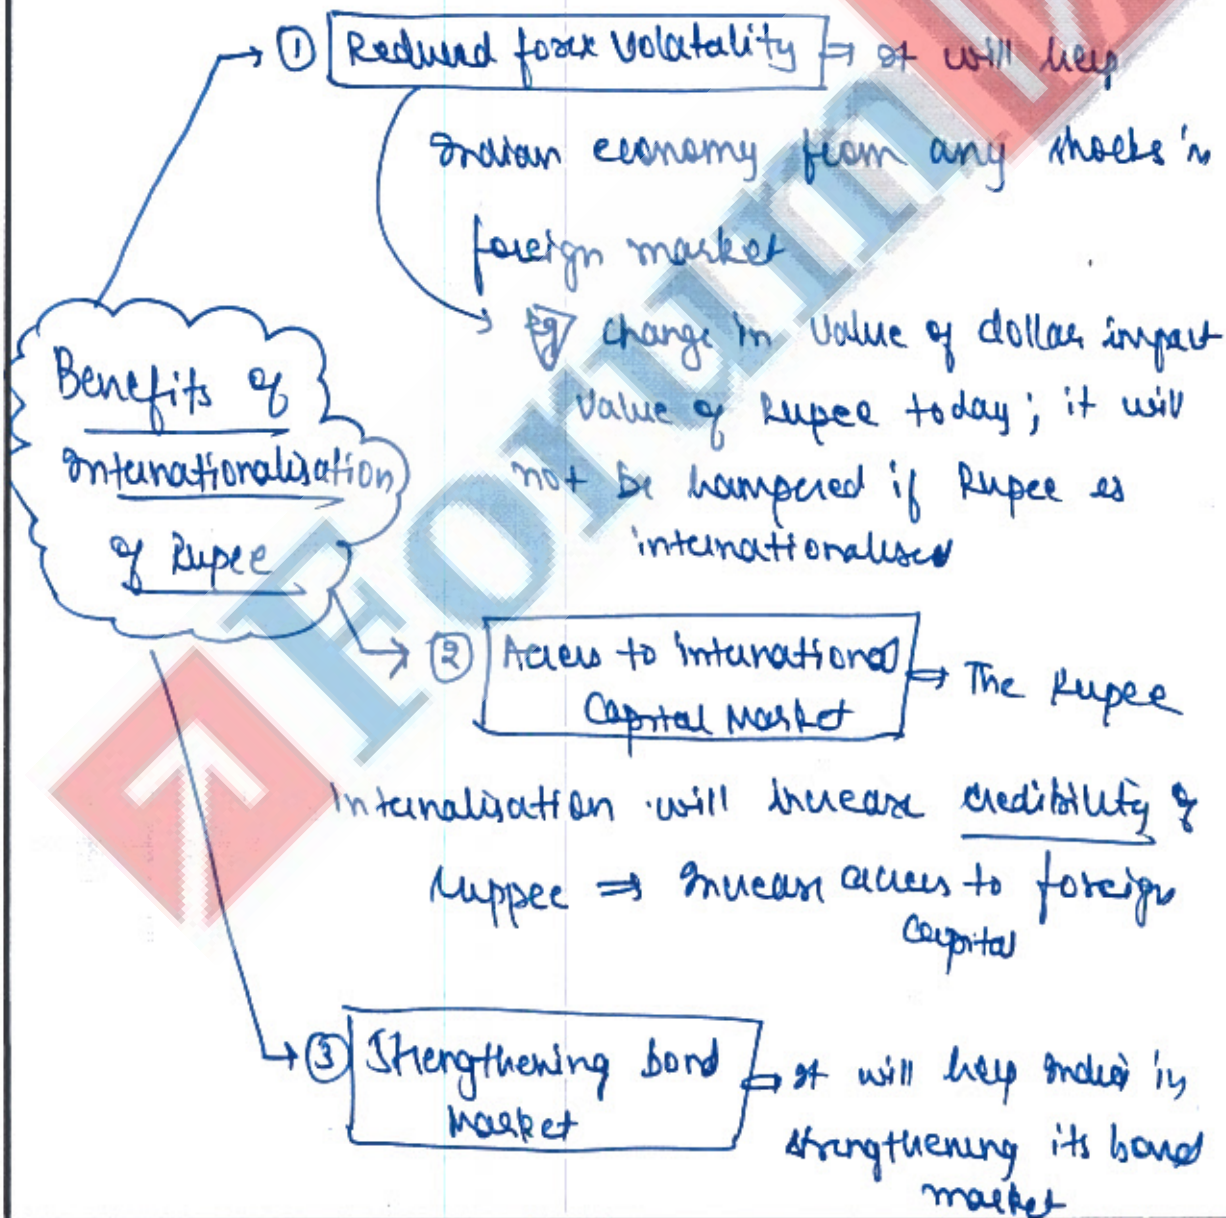 ① Reduced forex Volatality ⇒ It will help
Indian economy from any shocks in
foreign market
Eg change in Value of dollar impact
Value of Rupee today; it will
not be hampered if Rupee is
internationalised
Benefits of
Internationalisation
of Rupee
② Access to international
Capital Market ⇒ The Rupee
Internalisation will increase credibility of
Ruppee ⇒ Increase access to foreign
capital
③ Strengthening bond
Market ⇒ It will help India in
strengthening its bond
market
Forum